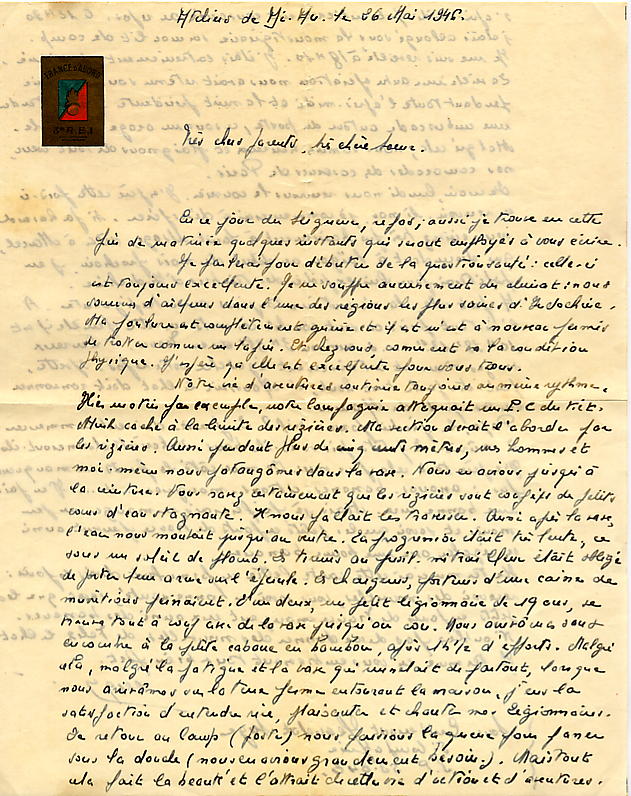 Ateliers de My. Au. le 26 Mai 1946.
FRANCE D'ABORD
3e R.E.I
Très chers parents, très chère soeur.
En ce jour du Seigneur, repos; aussi je trouve en cette
fin de matinée quelques instants qui seront employés à vous écrire.
Je parlerai pour débuter de la question santé: celle-ci
est toujours excellente. Je ne souffre aucunement du climat: nous
sommes d'ailleurs dans l'une des régions les plus saines d'Indochine.
Ma foulure est complètement guérie et il m'est à nouveau permis
de trotter comme un lapin. Et chez vous, comment va la condition
physique. J'espère qu'elle est excellente pour vous tous.
Notre vie d'aventures continue toujours au même rythme.
Hier matin par exemple, notre Compagnie attaquait un P.C du Viet-
Minh caché à la limite des rizières. Ma section devait l'aborder par
les rizières. Aussi pendant plus de cinq cents mètres, mes hommes et
moi-même nous pataugâmes dans la vase. Nous en avions jusqu'à
la ceinture. Vous savez certainement que les rizières sont coupées de petits
cours d'eau stagnante. Il nous fallait les traverser. Ainsi après la vase,
l'eau nous montait jusqu'au ventre. La progression était très lente, ce
sous un soleil de plomb. Le tireur au fusil-mitrailleur était obligé
de porter son arme sur l'épaule. Les chargeurs, porteurs d'une caisse de
munitions peinaient. L'un d'eux, un petit légionnaire de 19 ans, se
trouva tout à coup avec de la vase jusqu'au cou. Nous arrivâmes sans
encombre à la petite cabane en bambou, après 1h1/2 d'efforts. Malgré
cela, malgré la fatigue et la vase qui ruisselait de partout, lorsque
nous arrivâmes sur la terre ferme entourant la maison, j'eus la
satisfaction d'entendre rire, plaisanter et chanter mes légionnaires.
De retour au camp (poste) nous faisions la queue pour passer
sous la douche (nous en avions grandement besoin). Mais tout
cela fait la beauté et l'attrait de cette vie d'action et d'aventures.